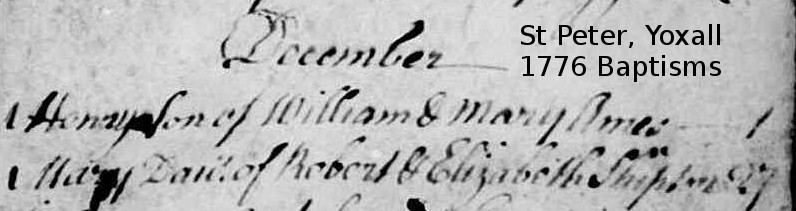 December
St Peter, Yoxall
1776 Baptisms
Henry son of William & Mary Ames 1
Mary Dau.r of Robert & Elizabeth Shipton 27